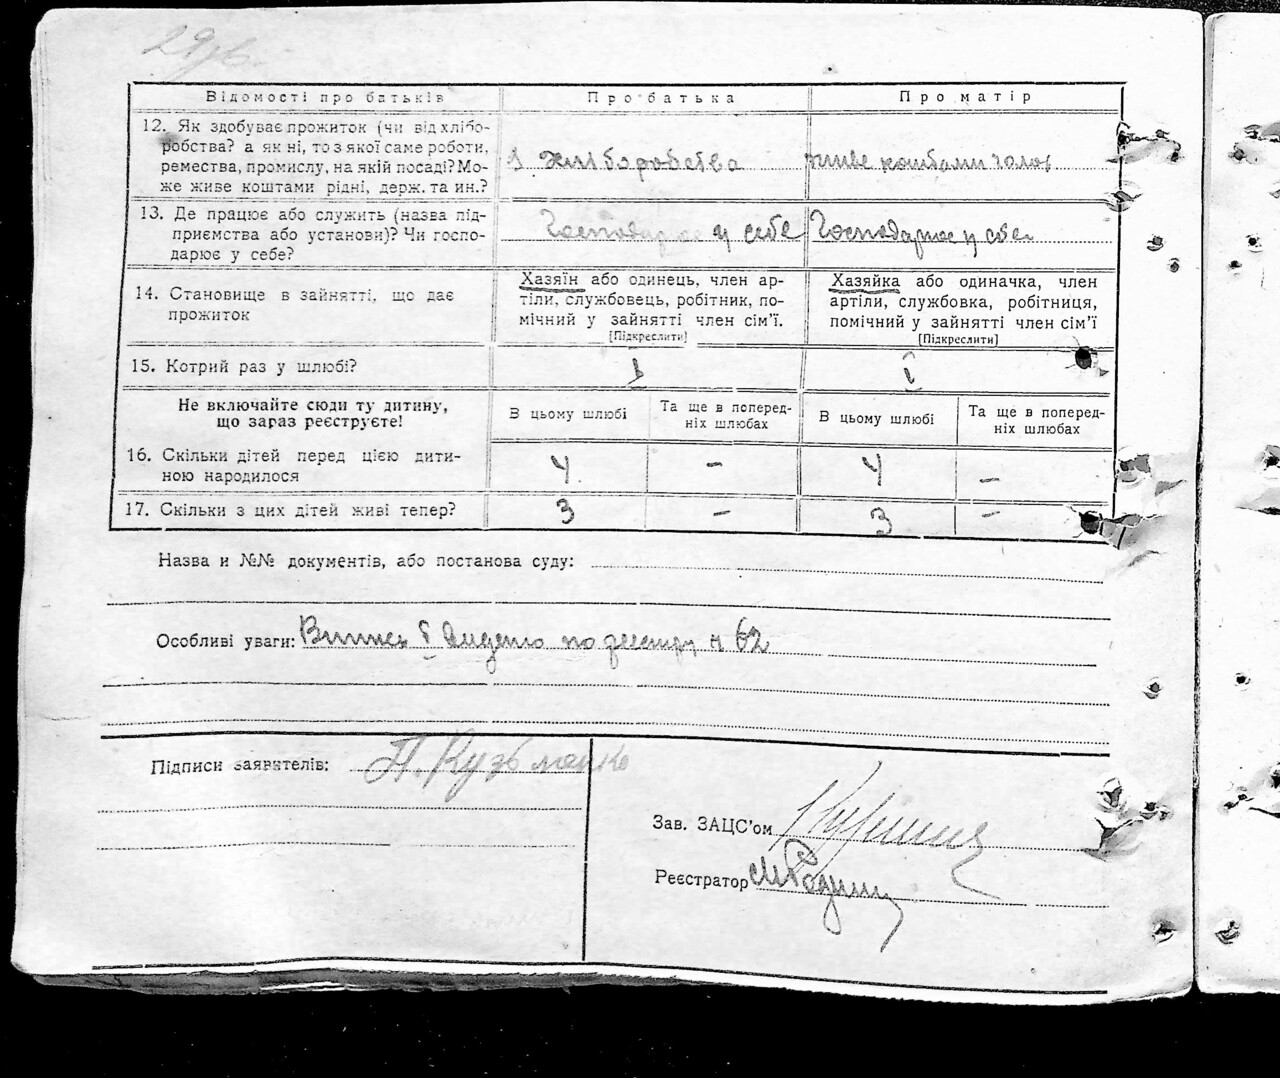 29зв.
Відомості про батьків
Про батька
Про матір
12. Як здобуває прожиток (чи від хлібо-
робства? а як ні, то з якої саме роботи,
ремества, промислу, на якій посаді? Мо-
же живе коштами рідні, держ. та ин.?
з хліборобства
живе коштами чолов
13. Де працює або служить (назва під-
приємства або установи)? Чи госпо-
дарює у себе?
Господарює у себе
Господарює у себе
14. Становище в зайнятті, що дає
прожиток
Хазяїн або одинець, член ар-
тіли, службовець, робітник, по-
мічний у зайнятті член сім'ї.
[Підкреслити]
Хазяйка або одиначка, член
артіли, службовка, робітниця,
помічний у зайнятті член сім'ї
[Підкреслити]
15. Котрий раз у шлюбі?
1
1
Не включайте сюди ту дитину,
що зараз реєструєте!
В цьому шлюбі
Та ще в поперед-
ніх шлюбах
В цьому шлюбі
Та ще в поперед-
ніх шлюбах
16. Скільки дітей перед цією дити-
ною народилося
4 – 4 –
17. Скільки з цих дітей живі тепер?
3 – 3 –
Назва и №№ документів, або постанова суду:
Особливі уваги: по реєстру № 62
Підписи заявителів: П. Кузьменко
Зав. ЗАЦС'ом
Реєстратор